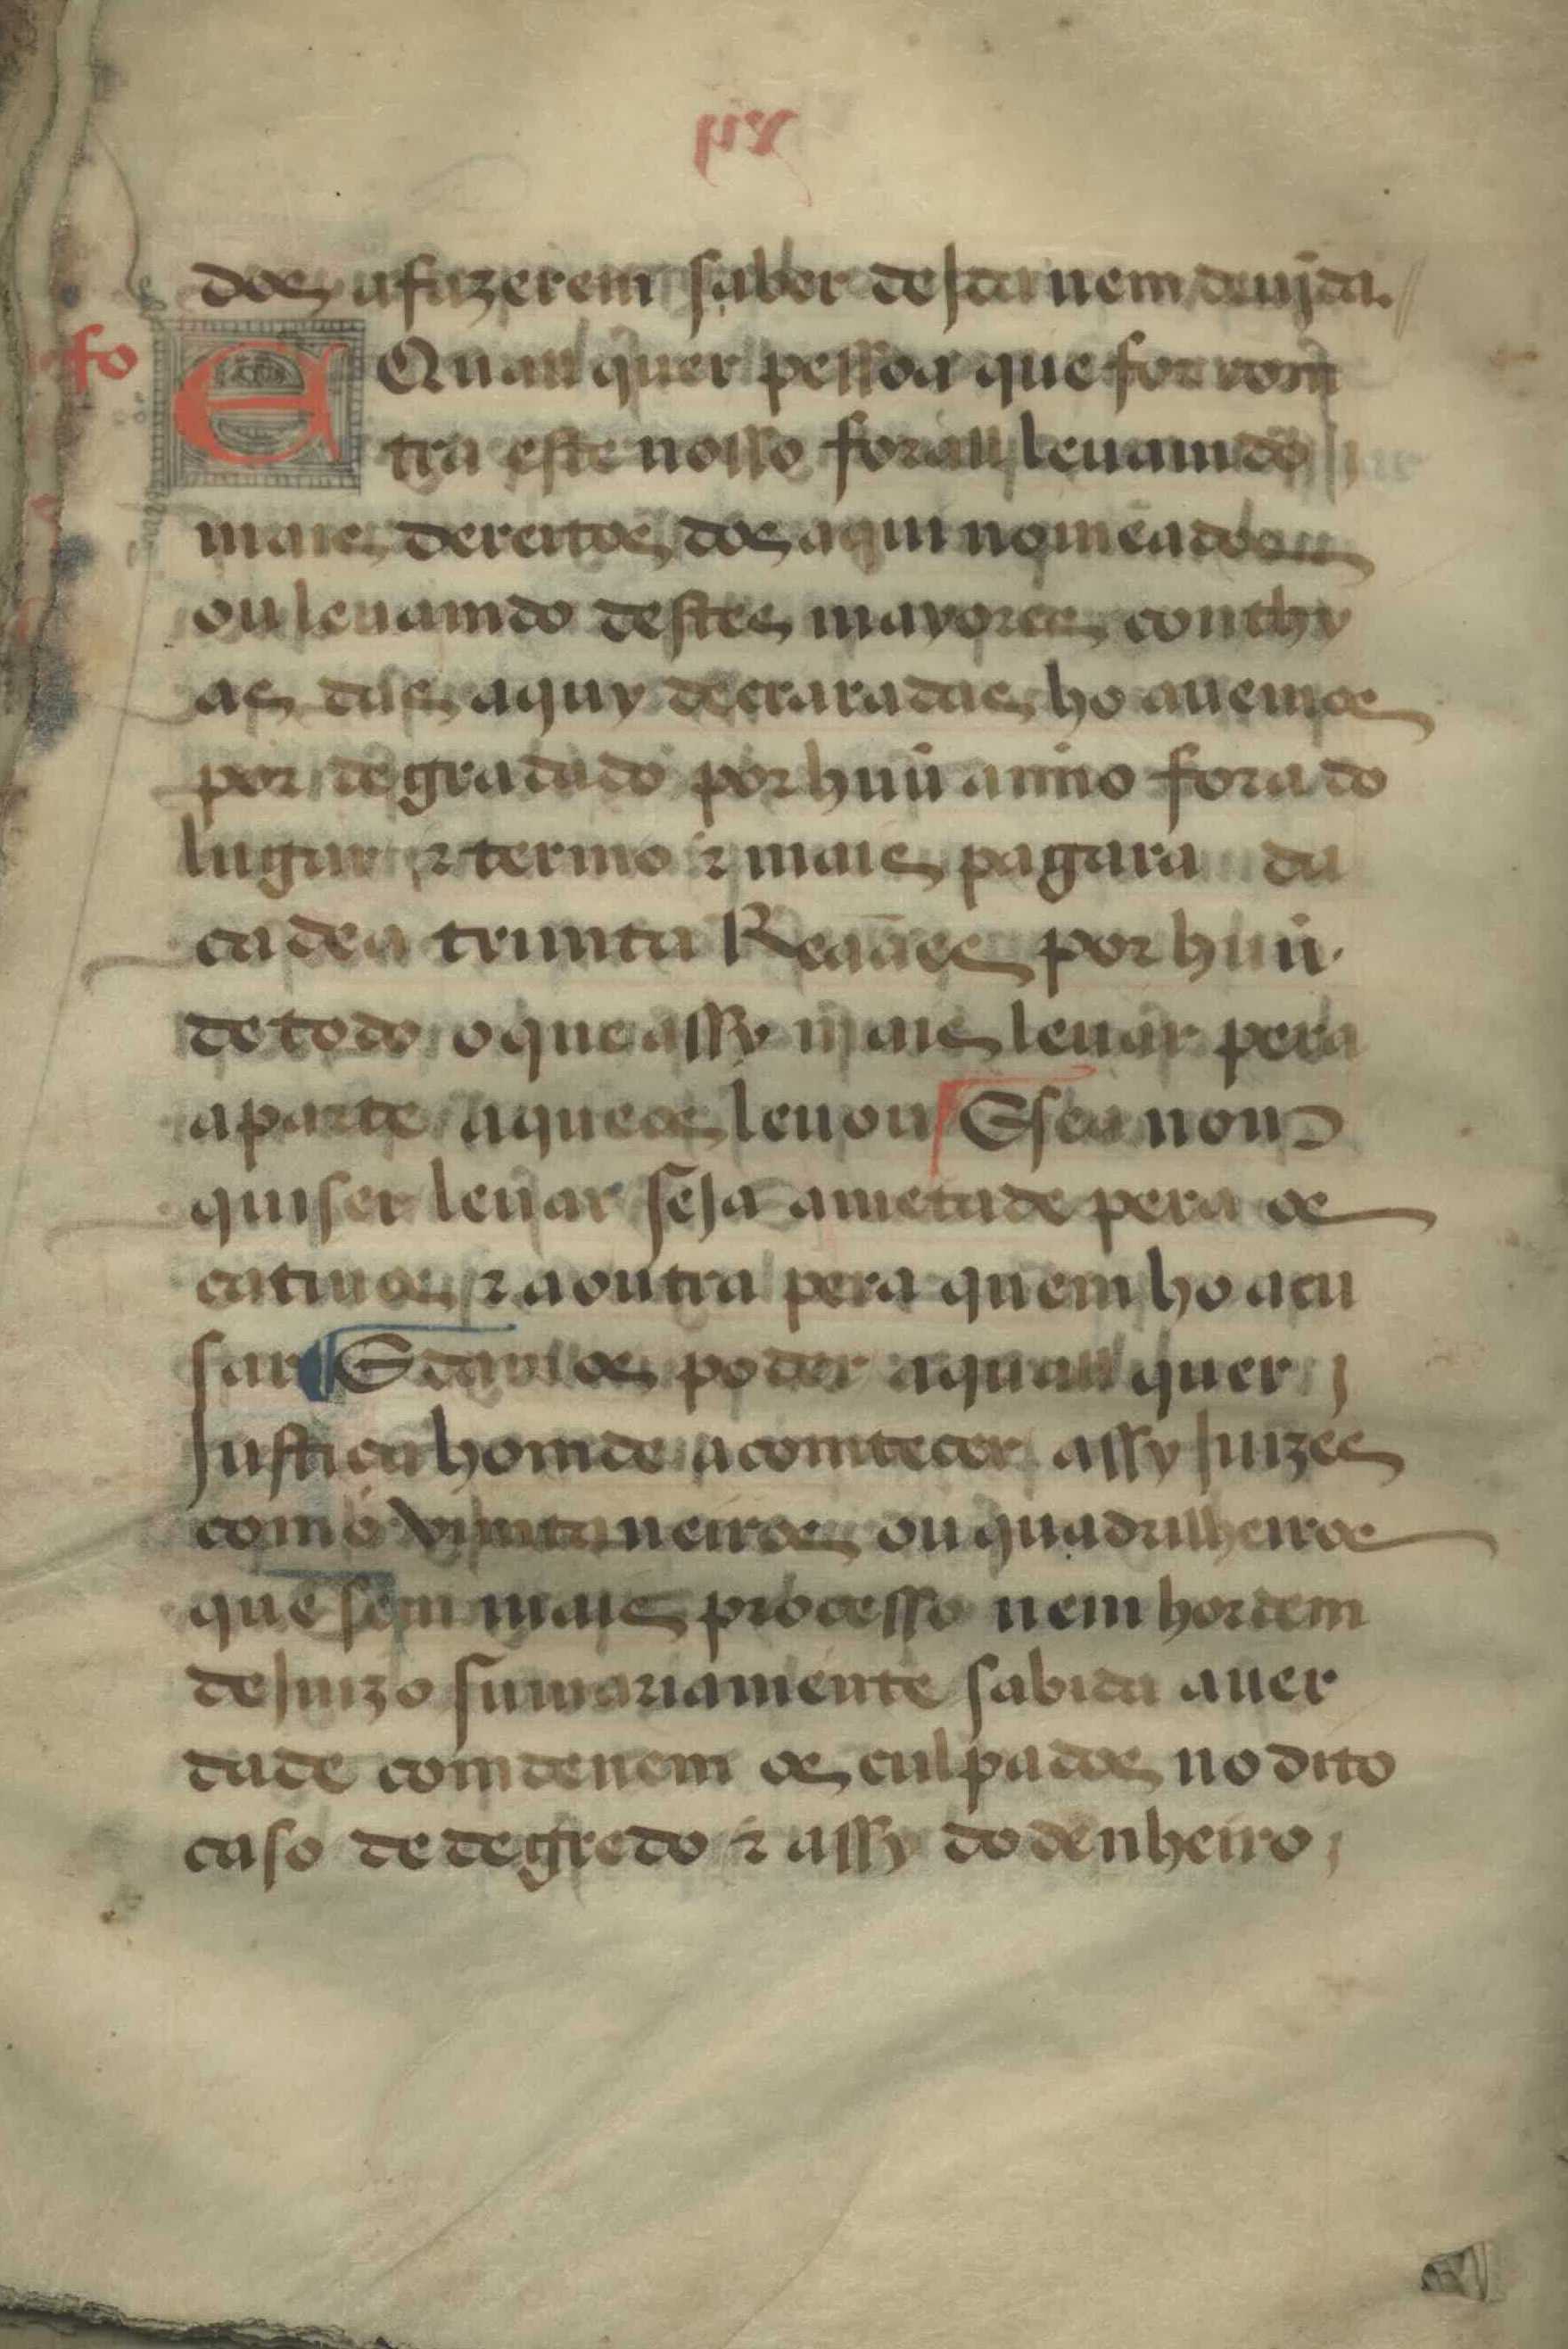 dos afazerem saber de sda nem deuida. //
fo
E Quall quer pessoa que for com
tra este nosso forall leuamdo
mais dereitos dos aqui nomeados
ou leuamdo destes mayores conthy
as das aquy decraradas ho auemos
por degradado por huũ anno fora do
lugar ⁊ termo ⁊ mais pagara da
cadea trimta Reaães por huũ.
de todo o que assy mais leuar pera
aparte aqueos leuou E sea nom
quiser leuar seJa ametade pera os
catiuos ⁊ aoutra pera quem ho acu
sar E damos poder aquall quer
Justica homde acomtecer assy Juizes
como vimtaneiros ou quadrilheiros
que sem mais processo nem hordem
de Juizo sumariamente sabida auer
dade comdenem os culpados no dito
caso de degredo ⁊ assy do denheiro